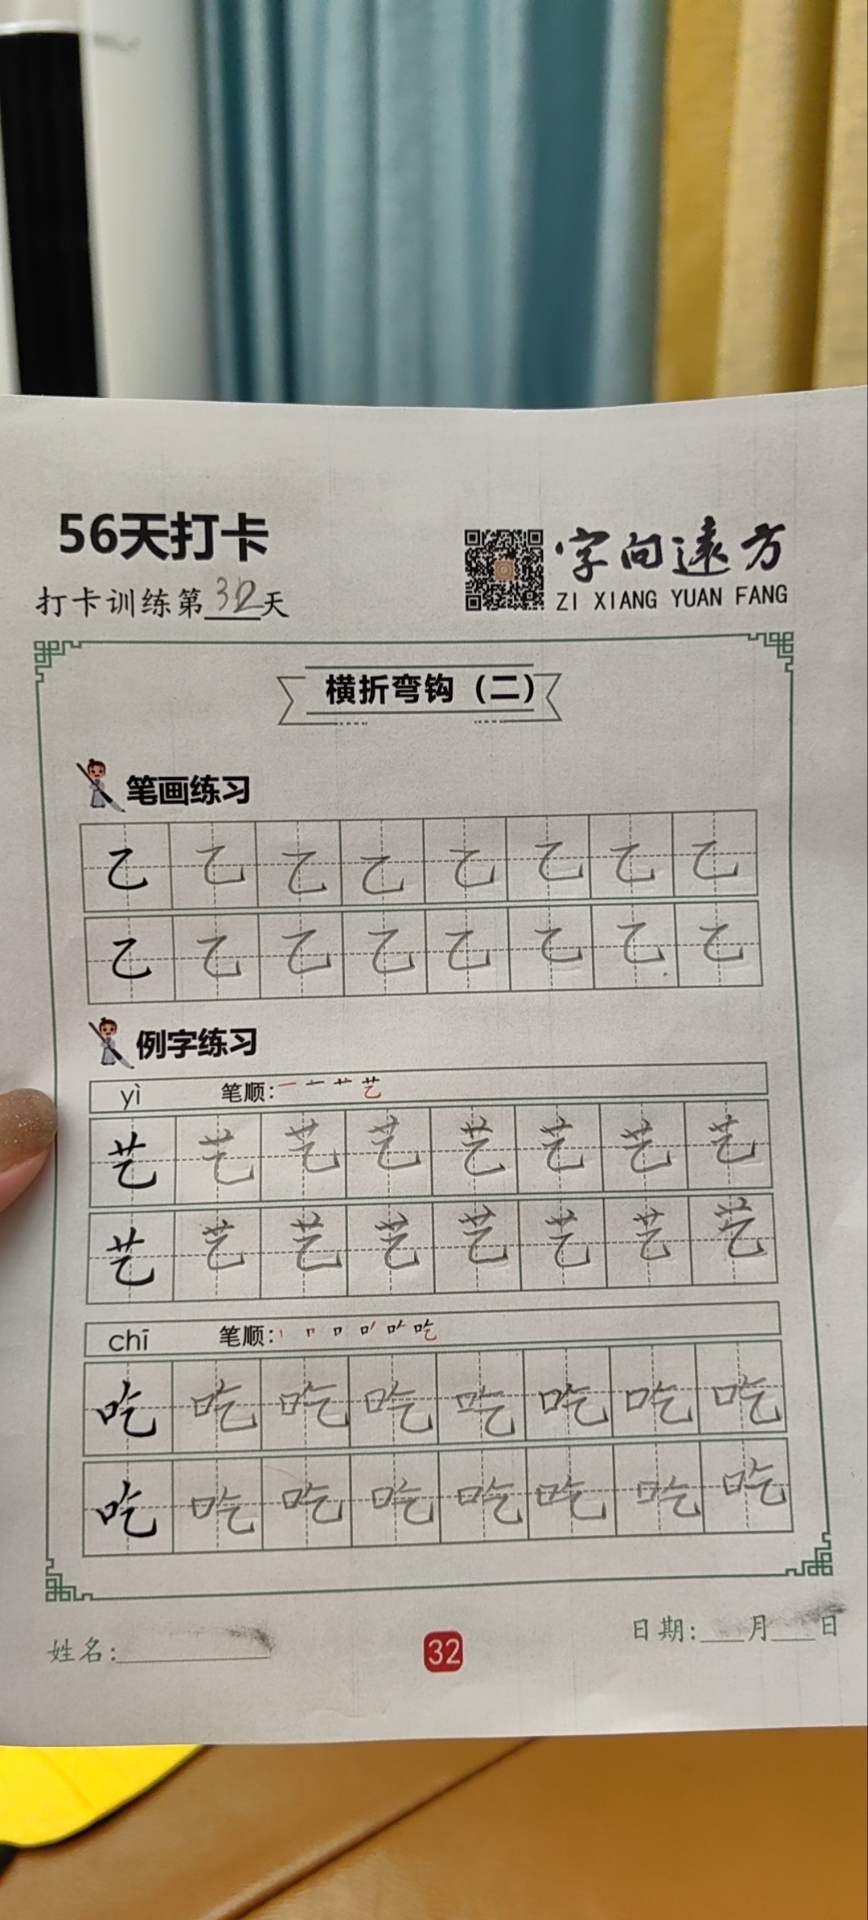 56天打卡
字向遠方
打卡训练第32天
ZI XIANG YUAN FANG
横折弯钩（二）
笔画练习
乙 乙 乙 乙 乙 乙 乙 乙
乙 乙 乙 乙 乙 乙 乙 乙
例字练习
yì 笔顺: 一 十 艹 艺
艺 艺 艺 艺 艺 艺 艺 艺
艺 艺 艺 艺 艺 艺 艺 艺
chī 笔顺: 丨 口 吃
吃 吃 吃 吃 吃 吃 吃 吃
吃 吃 吃 吃 吃 吃 吃 吃
姓名:
32
日期:___月___日